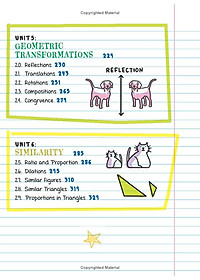 Copyrighted Material
UNIT 5:
GEOMETRIC
TRANSFORMATIONS 229
20. Reflections 230
21. Translations 243
22. Rotations 251
23. Compositions 265
24. Congruence 279
REFLECTION
UNIT 6:
SIMILARITY 285
25. Ratio and Proportion 286
26. Dilations 295
27. Similar Figures 310
28. Similar Triangles 319
29. Proportions in Triangles 329
Copyrighted Material